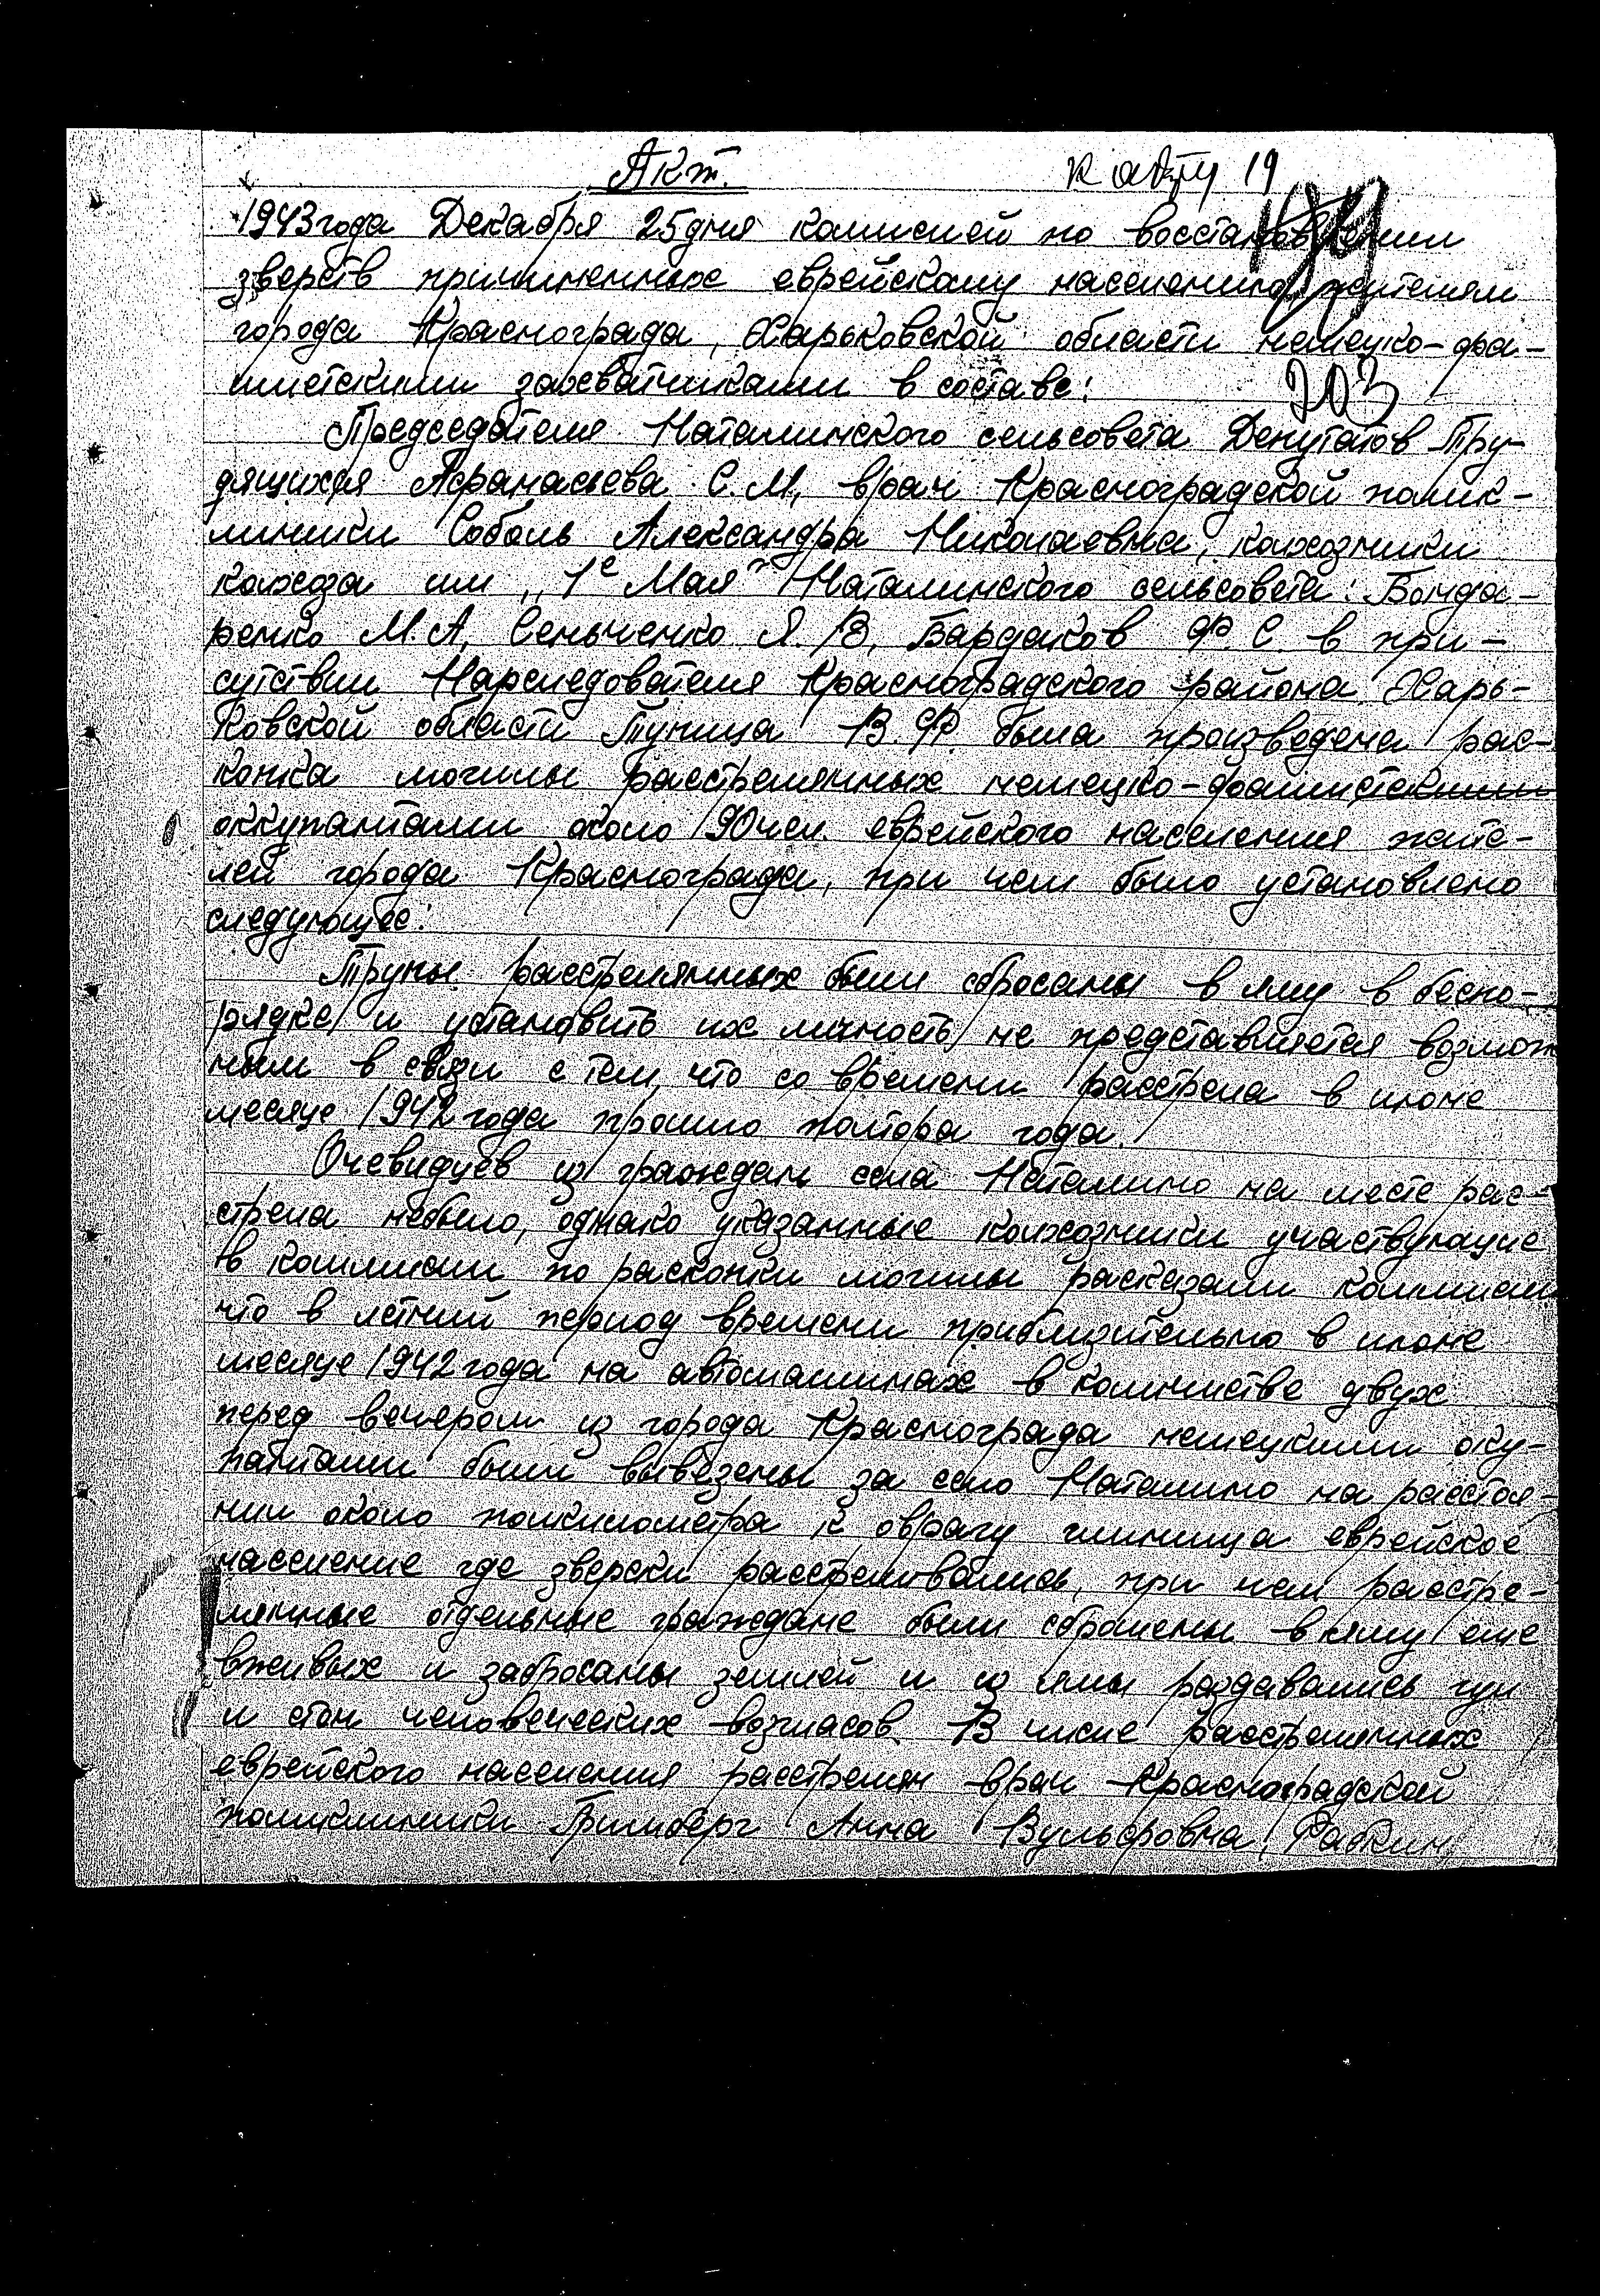 Акт.
к акту 19
194
1943 года Декабря 25 дня комиссией по восстановлении
зверств причиненных еврейскому населению жителям
города Краснограда, Харьковской области немецко-фа-
шистскими захватчиками в составе:
203
Председателя Наталинского сельсовета Депутатов Тру-
дящихся Афанасьева С.М, врач Красноградской полик-
линики Соболь Александра Николаевна, колхозники
колхоза им „1е Мая" Наталинского сельсовета: Бонда-
ренко М.А, Сеньченко Я.В, Бардаков Ф.С. в при-
сутствии Нарследователя Красноградского района Харь-
ковской области Туница В.Ф. была произведена рас-
копка могилы расстрелянных немецко-фашистскими
оккупантами около 90 чел. еврейского населения жите-
лей города Краснограда, при чем было установлено
следующее:
Трупы расстрелянных были сбросаны в яму в беспо-
рядке и установить их личность не представляется возмож
ным в связи с тем, что со времени расстрела в июне
месяце 1942 года прошло полтора года.
Очевидцев из граждан села Наталино на месте рас-
стрела небыло, однако указанные колхозники участвующие
в коммисии по раскопки могилы расказали коммисии
что в летний период времени приблизительно в июне
месяце 1942 года на автомашинах в количестве двух
перед вечером из города Краснограда немецкими оку-
пантами были вывезены за село Наталино на расстоя-
нии около полкилометра к оврагу глинища еврейское
население где зверски расстреливались, при чем расстре-
лянные отдельные граждане были сброшены в яму еще
вживых и забросаны землей и из ямы раздавались гул
и стон человеческих возгласов. В числе расстрелянных
еврейского населения расстрелян врач Красноградской
поликлиники Гринберг Анна Вульфовна, Рабкин,